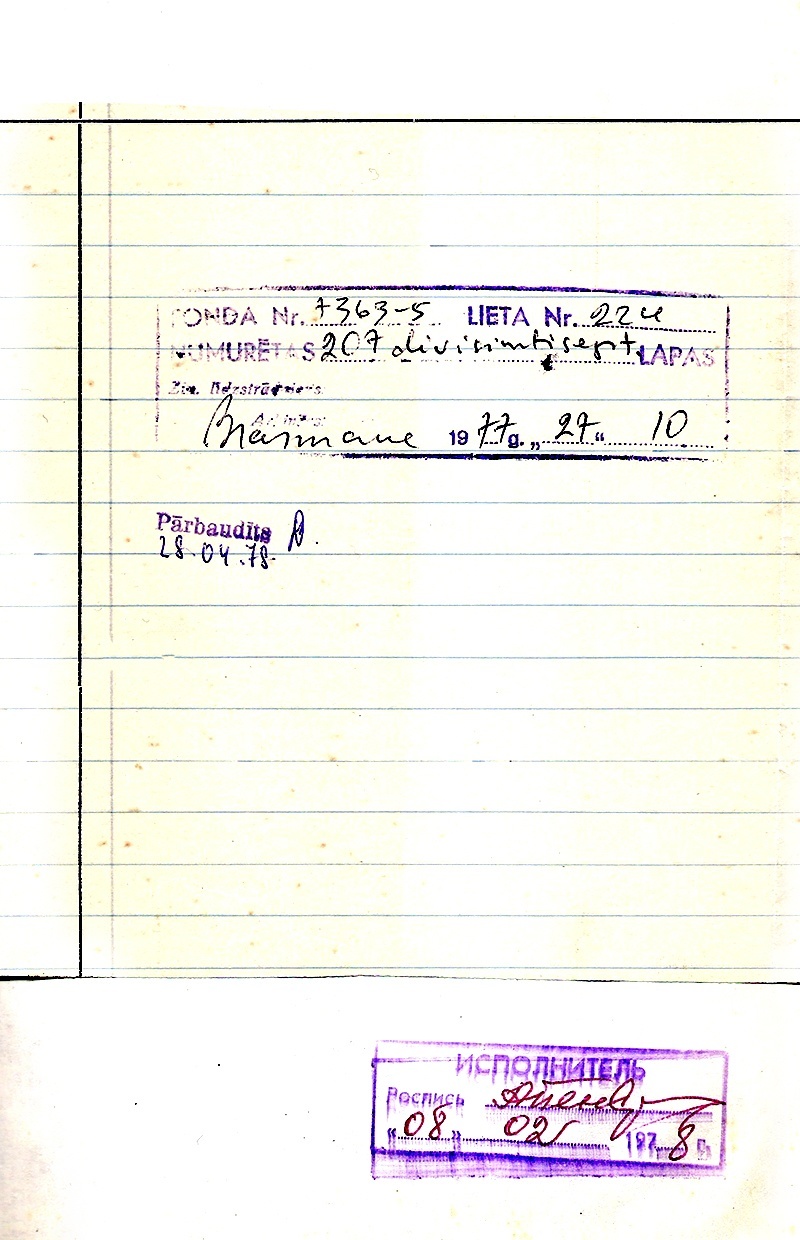 FONDA Nr. 7363-5 LIETA Nr. 224
NUMURĒTAS 207 divisimtisept. LAPAS
Zin. līdzstrādnieks:
1977 g. „27“ 10
Pārbaudīts
28.04.78.
ИСПОЛНИТЕЛЬ
Роспись
"08" 02 1978 г.